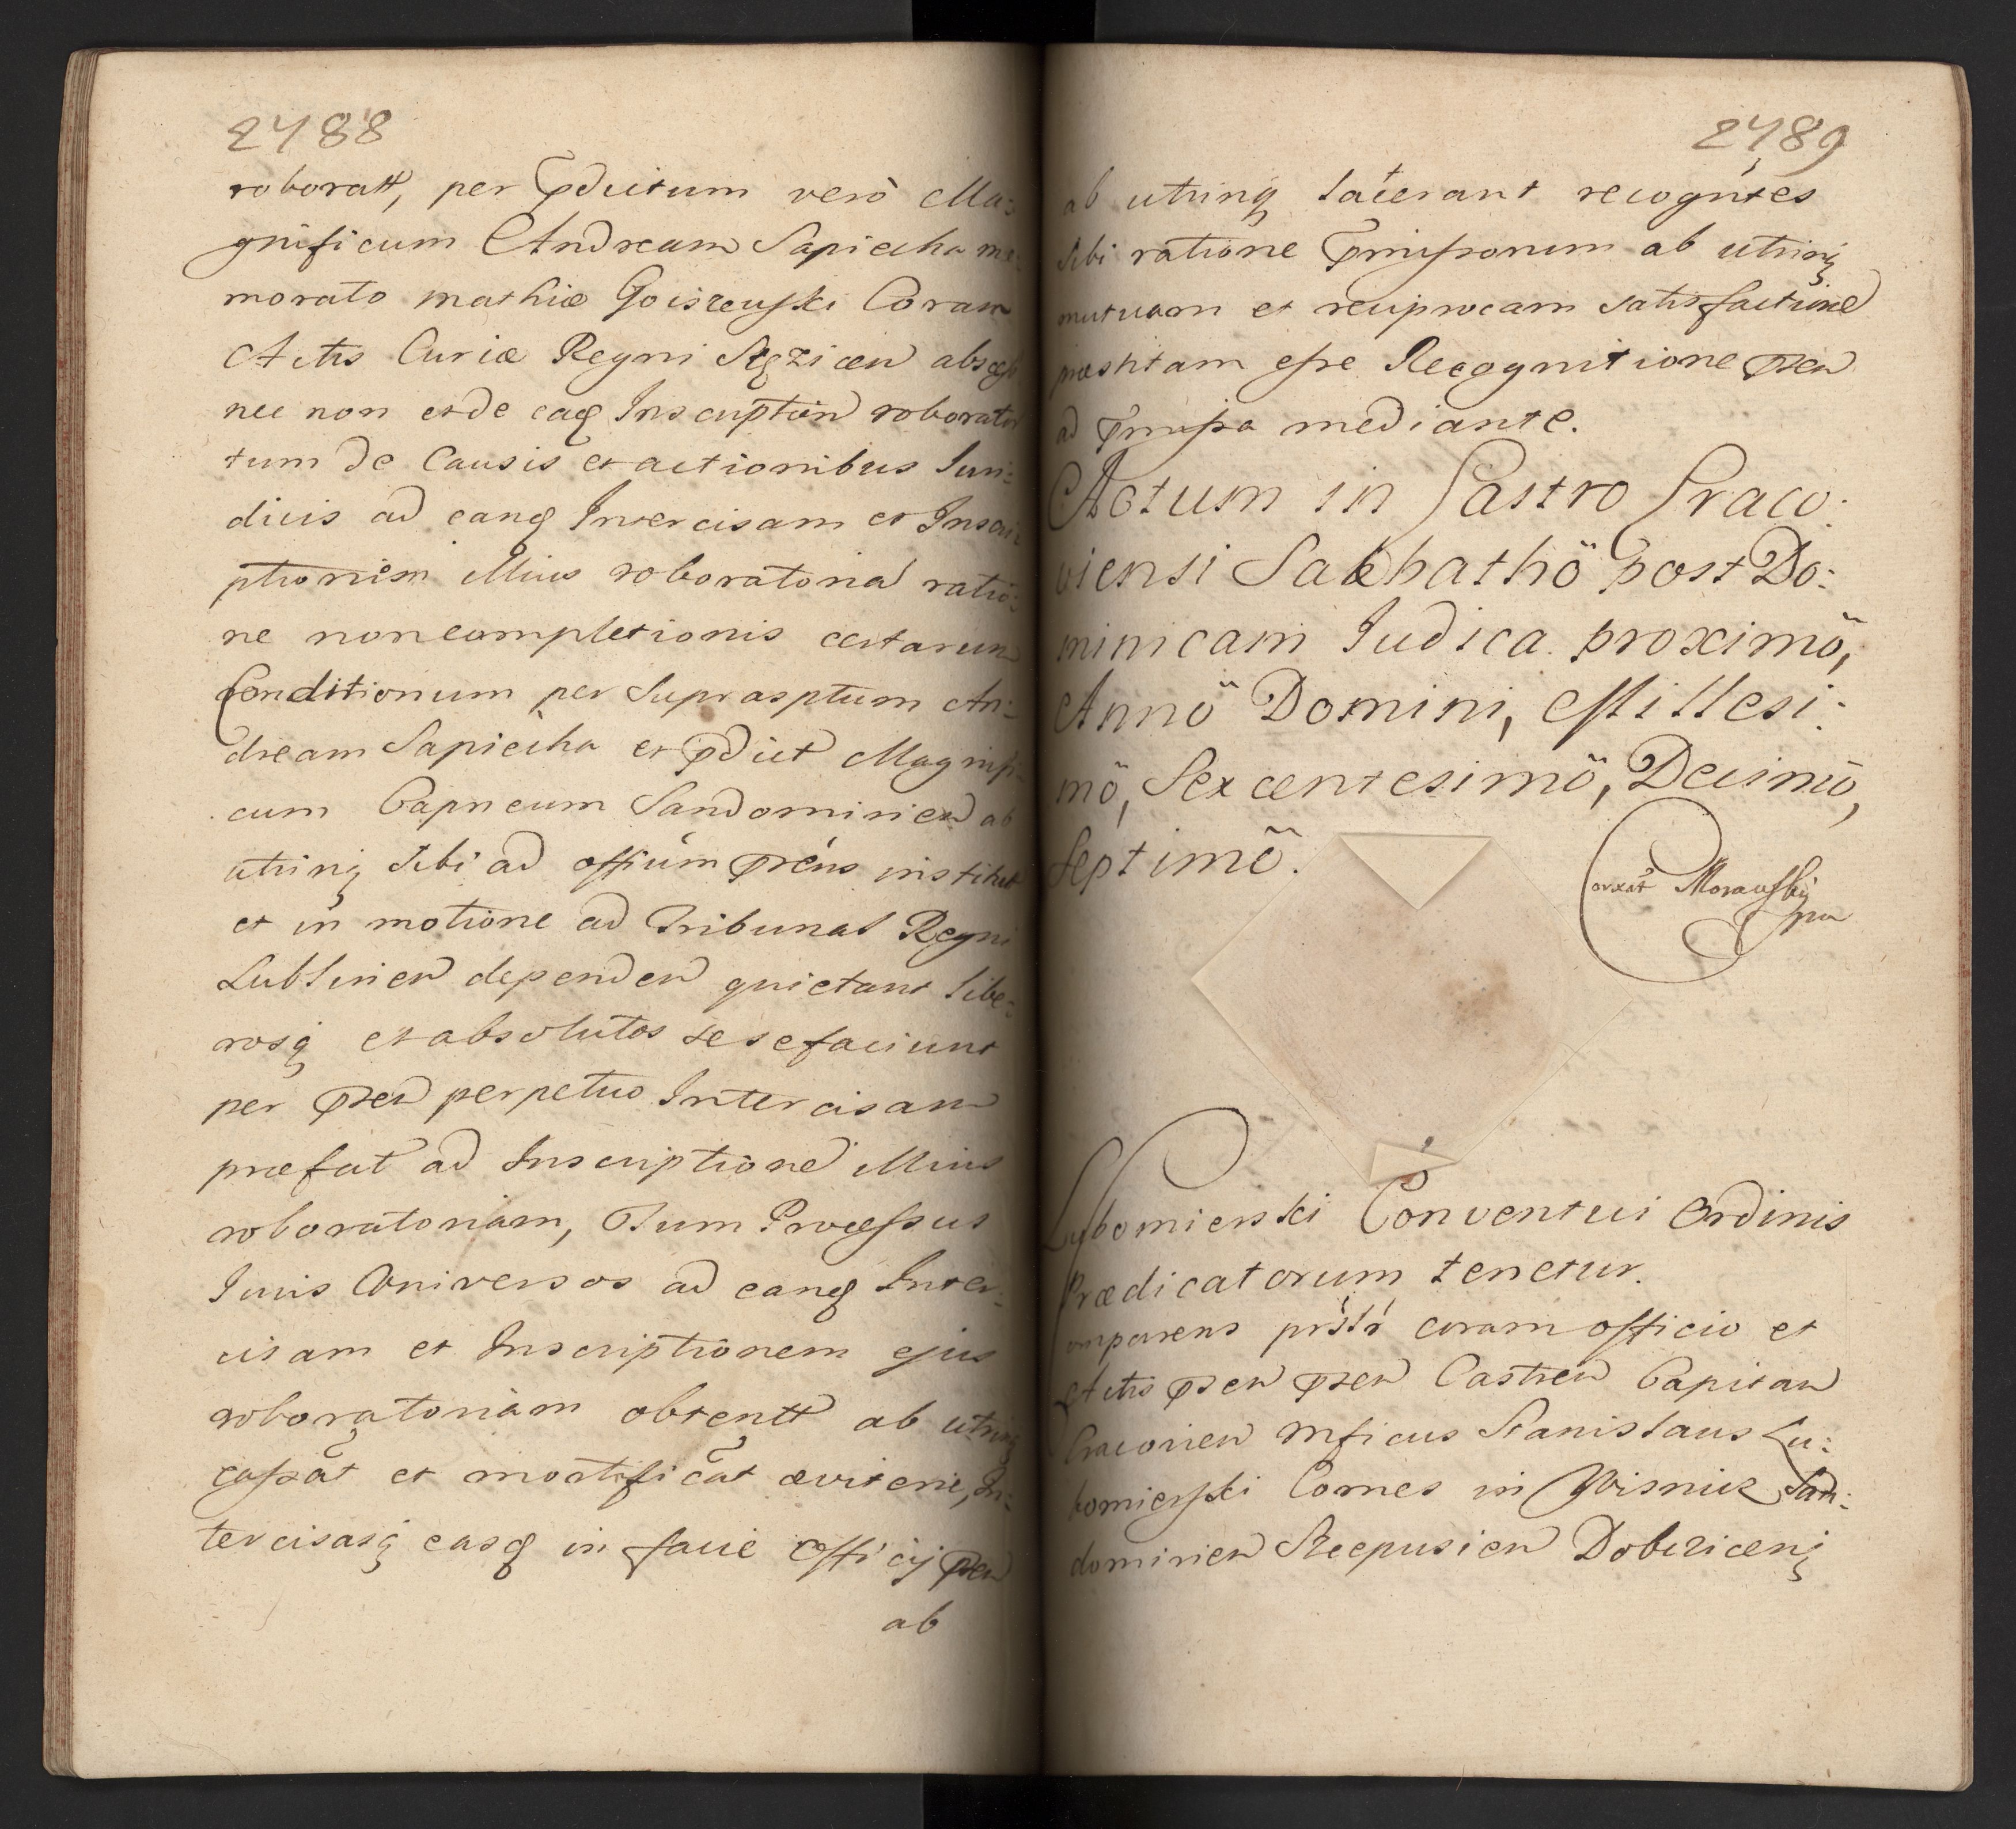 2488
roboratt, per pdictum verò Ma:
gnificum Andream Sapieiha me:
morato mathiæ Goiszewski Coram
Actis Curiæ Regni Stęzicen
nec non et de eaq Inscription roborator
tum de Causis et actionibus Iuri:
dicis ad eanq Intercisam et Inscri:
ptionem illius roboratoria ratio:
ne noncompletionis certarum
Conditionum per Suprasptum An:
dream Sapieiha et pdict Magnifi:
cum Capneum Sandomirien ab
utrinq sibi ad offium præns institut
et in motione ad Tribunal Regni
Lublinen dependen quietant libe:
rosq et absolutos sese faciunt
per præn perpetuo Intercisam
præfat ad Inscriptione illius
roboratoriam, Tum Processus
Iuris Universos ad eanq Inter:
cisam et Inscriptionem ejus
roboratoriam obtentt ab utrinq
cassat et mortificat æviterne, In:
tercisasq easq in facie officij præn
ab
2489
ab utrinq lacerant recognntes
sibi ratione pmissorum ab utrinq
mutuam et reciprocam satisfactione
præstitam esse Recognitione præn
ad pmissa mediante.
Actum in Castro Craco:
viensi Sabbathö post Do:
minicam Iudica proximö,
Annö Domini, Millesi:
mö, Sexcentesimö, Decimö,
Septimö.
Corrxit Morawskij
mp
Lubomierski Conventui Ordinis
Prædicatorum tenetur.
omparens prslr coram officio et
Actis præn præn Castren Capitan
Cracovien Mficus Stanislaus Lu:
bomierski Comes in Wisnicz San:
domirien Scepusien Dobczicenq